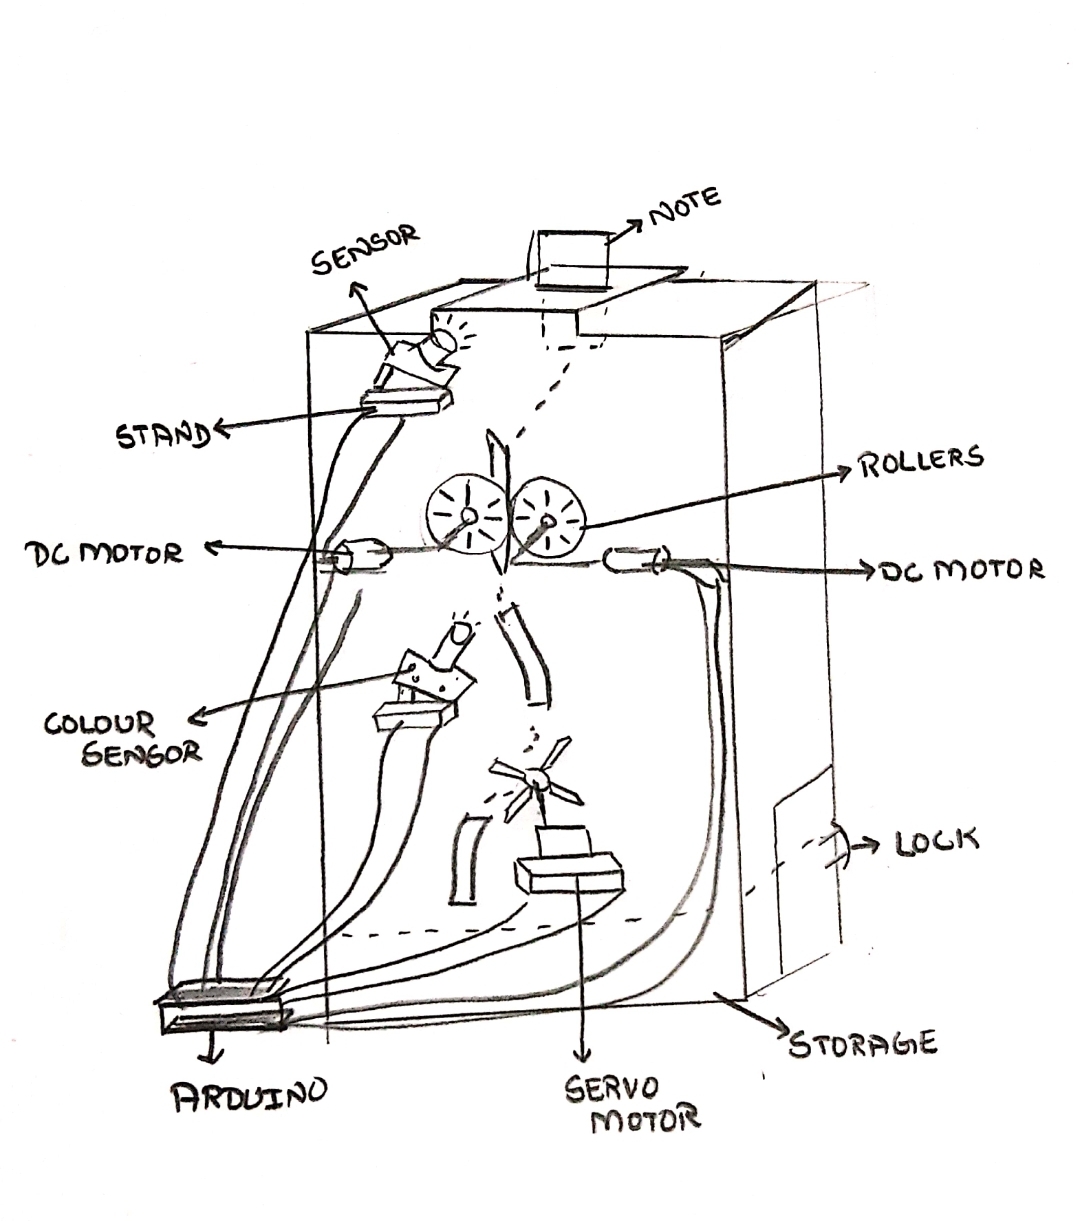 NOTE
SENSOR
STAND
ROLLERS
DC MOTOR
DC MOTOR
COLOUR
SENSOR
LOCK
STORAGE
ARDUINO
SERVO
MOTOR